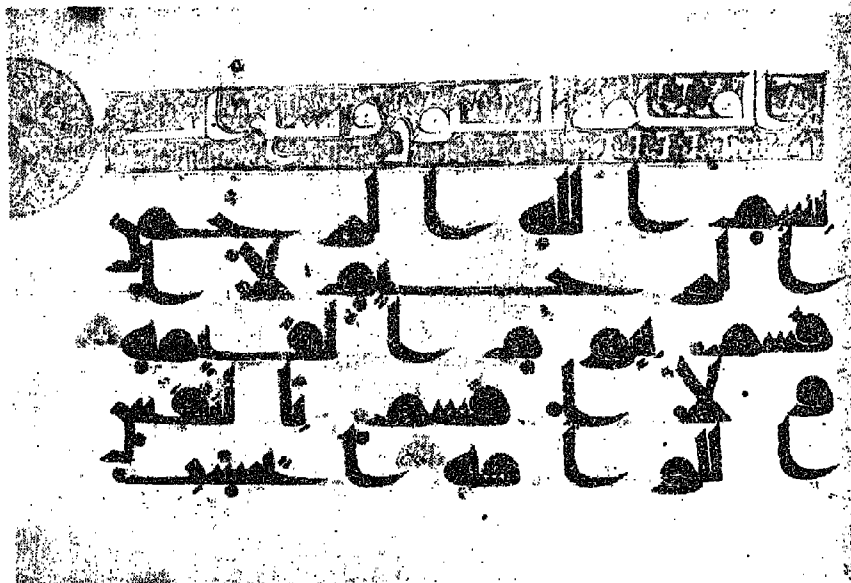 بسم الله الرحمن
الرحيم لا ا
قسم بيوم القيمة
و لا اقسم بالنفس
اللوامة ايحسب